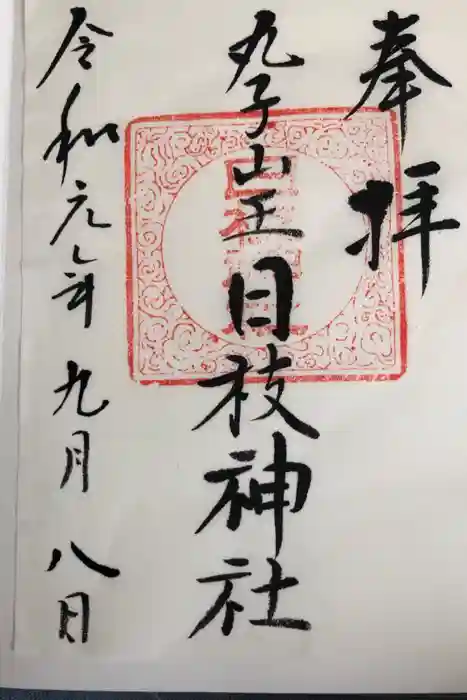 奉拝
丸子山王日枝神社
令和元年九月八日